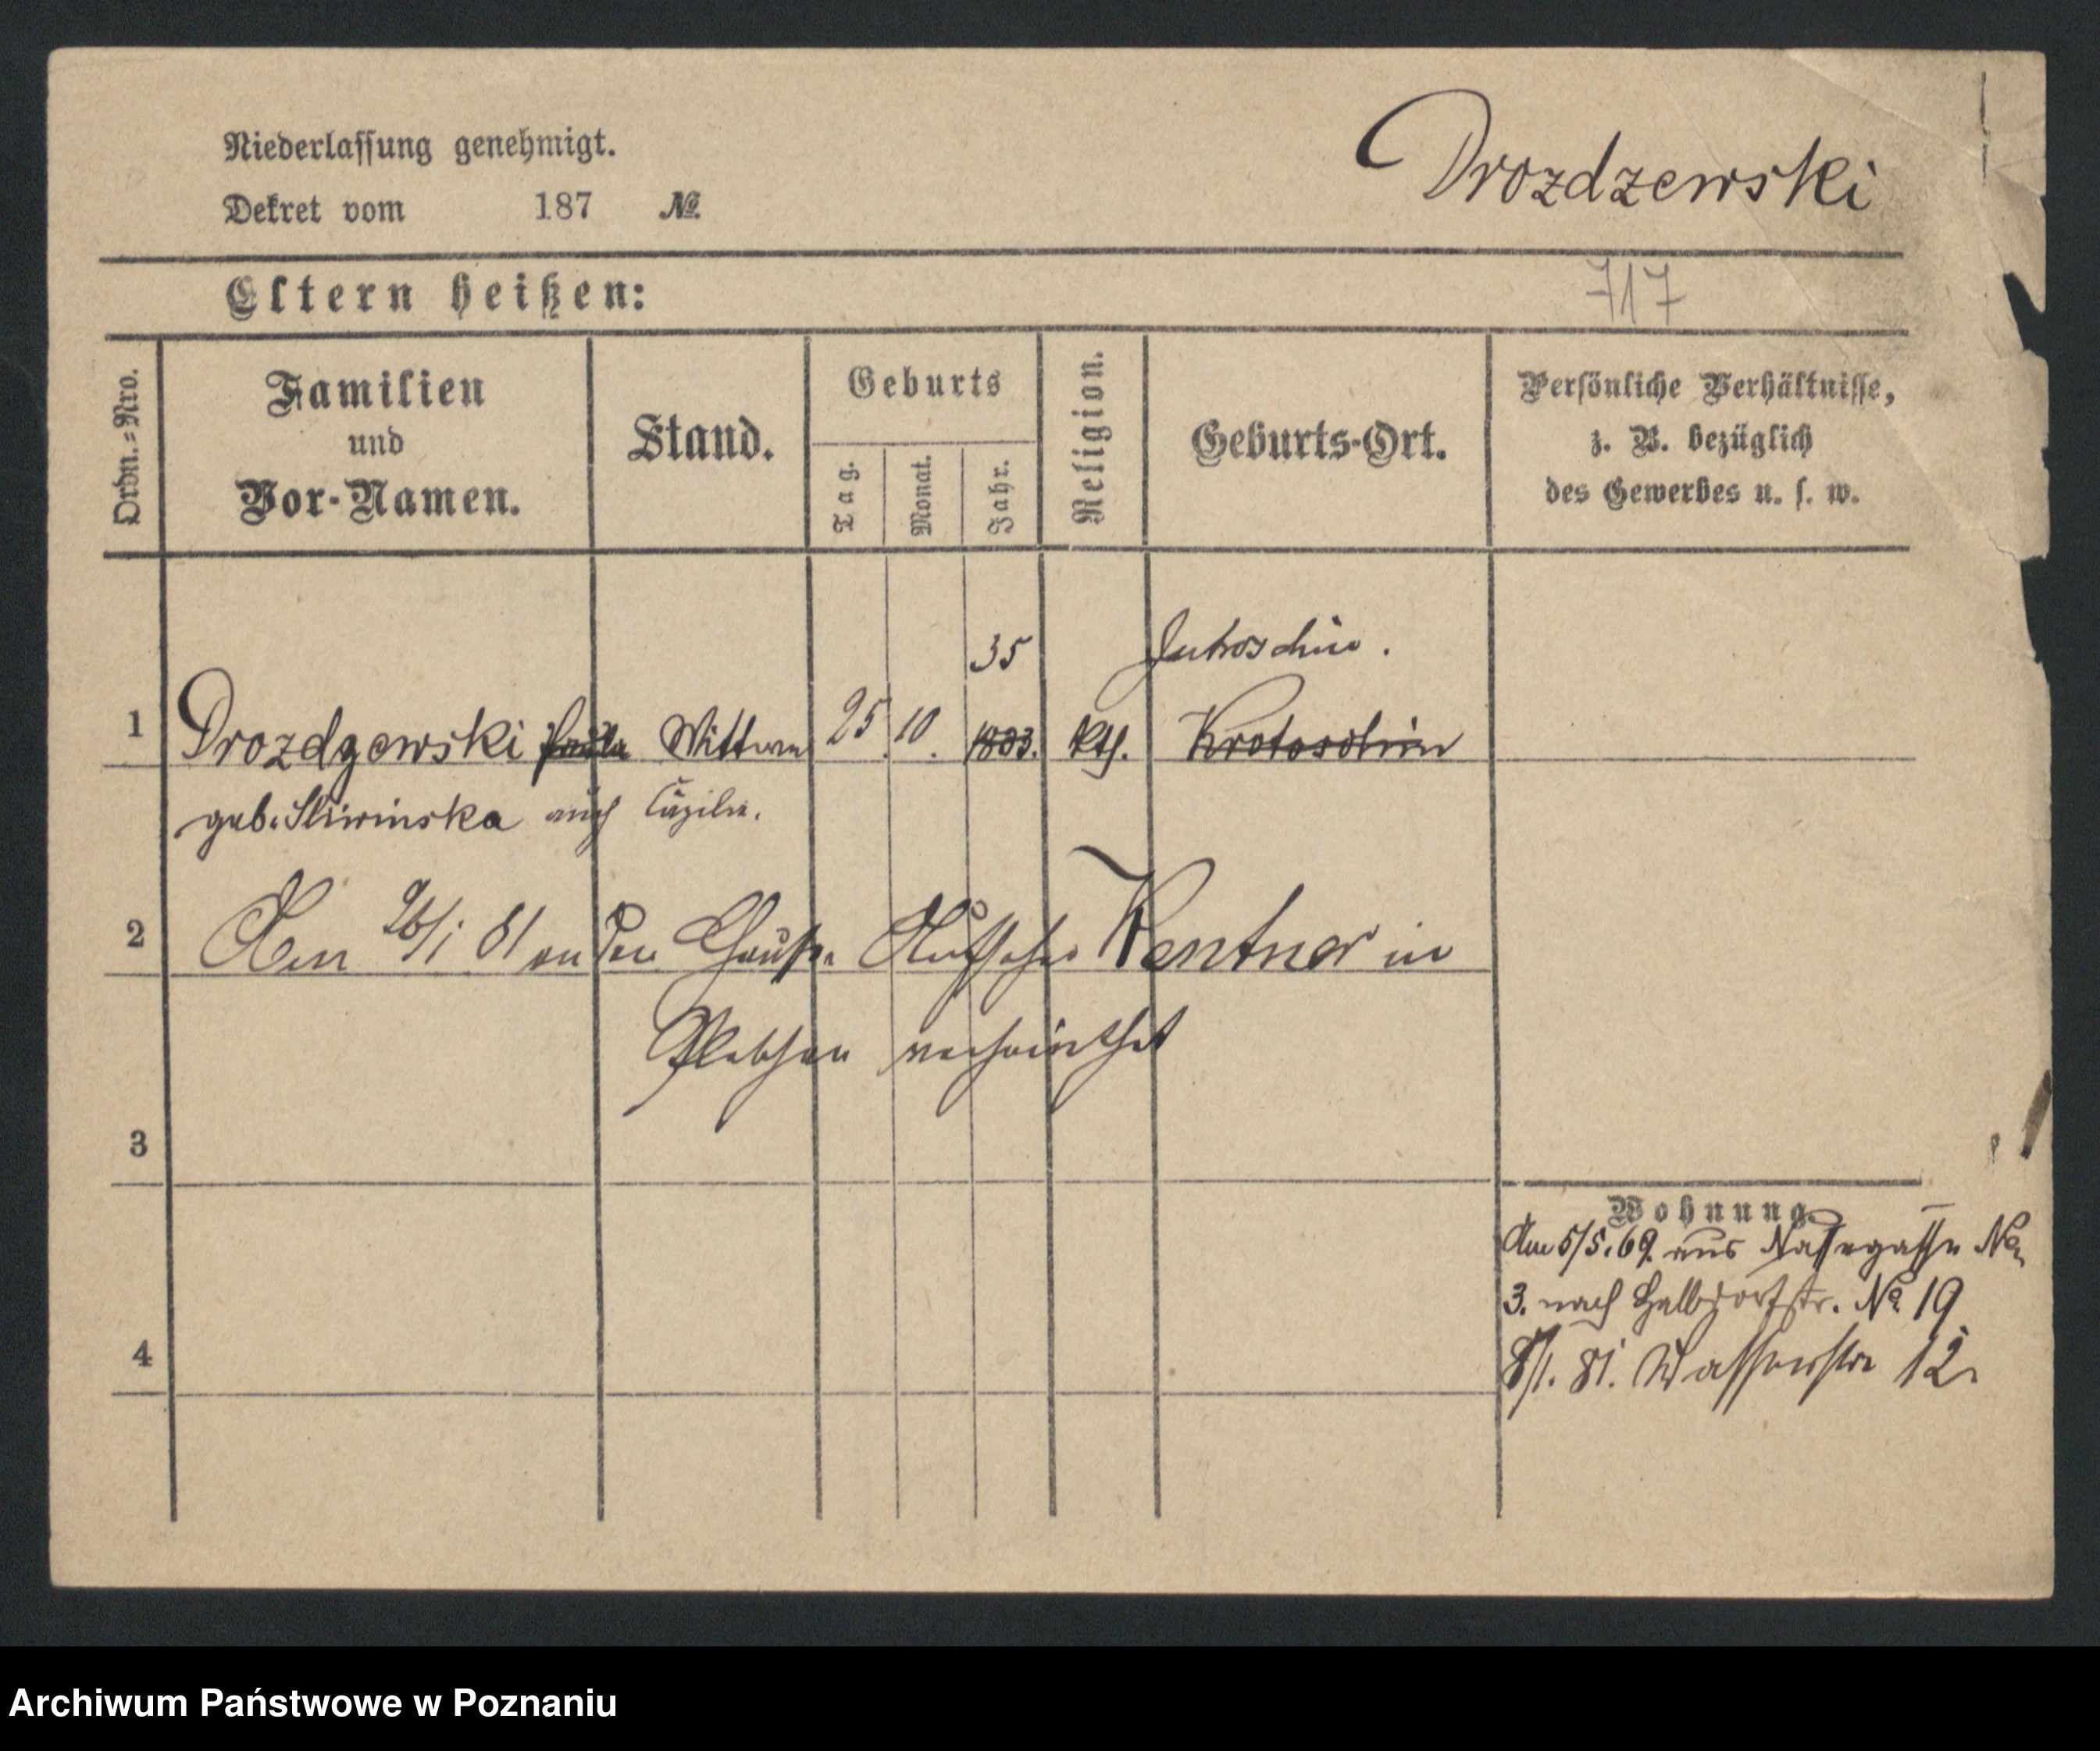 Niederlassung genehmigt.
Drozdzewski
Dekret vom 187 №
Eltern heißen:
717
Ordn.=Nro.
Familien
und
Vor-Namen.
Stand.
Geburts
Tag.
Monat.
Jahr.
Religion.
Geburts-Ort.
Persönliche Verhältnisse,
z. B. bezüglich
des Gewerbes u. s. w.
35 Jutroschin.
1 Drozdzewski Paula Wittwe 25. 10. 1833. Kth. Krotoschin
geb. Sliwinska auch Cäzilie.
2 Den 26/1 81 an den Chauss. Kentner in
Pleschen verheirathet
3
Wohnung.
Am 5/5. 69. aus Nassegasse No.
3. nach Halbdorfstr. No 19
4
8/1. 81. Wasserstr 12.
Archiwum Państwowe w Poznaniu